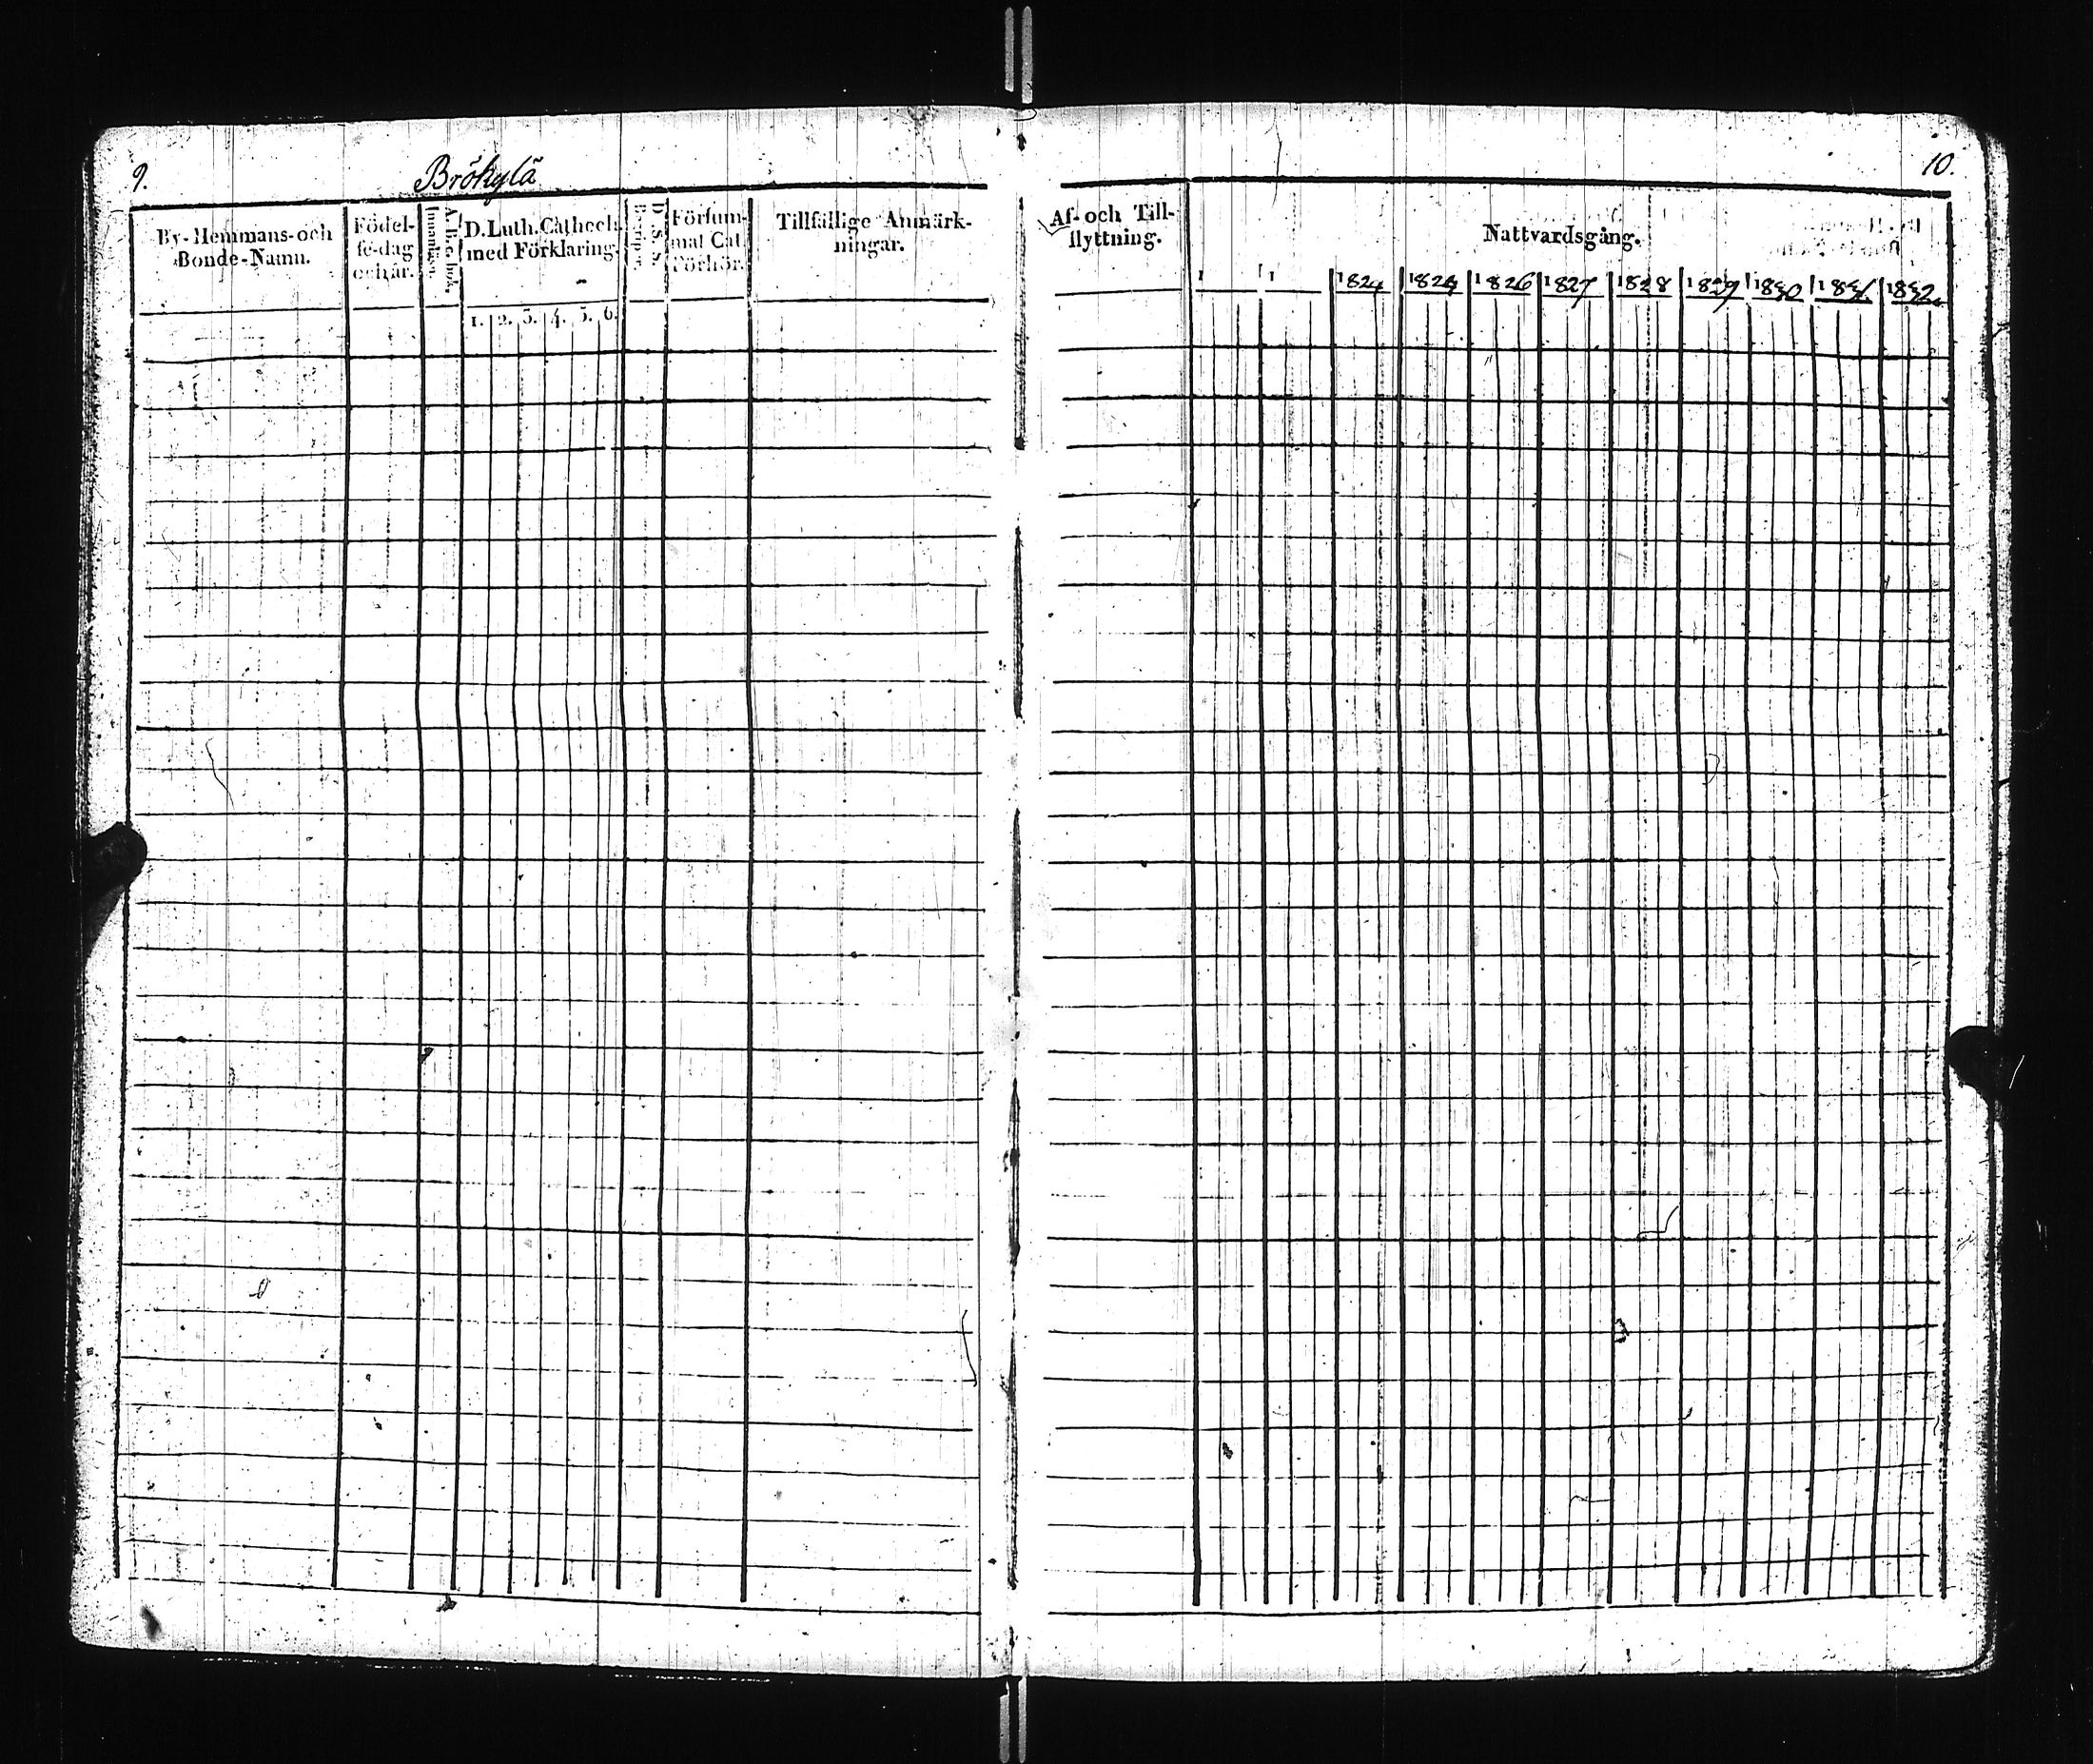 9.
Brökylä
10.
By-Hemmans-och
Bonde-Namn.
Födel-
se-dag
och år.
A.B.C.bok.
Innantill.
D. Luth. Cathech.
med Förklaring.
D. S. S.
Försum-
mat Cat.
Förhör.
Tillfällige Anmärk-
ningar.
1. 2. 3. 4. 5. 6.
Af- och Till-
flyttning.
Nattvardsgång.
1 1 1824 1826 1827 1828 1829 1830 1831. 1832.